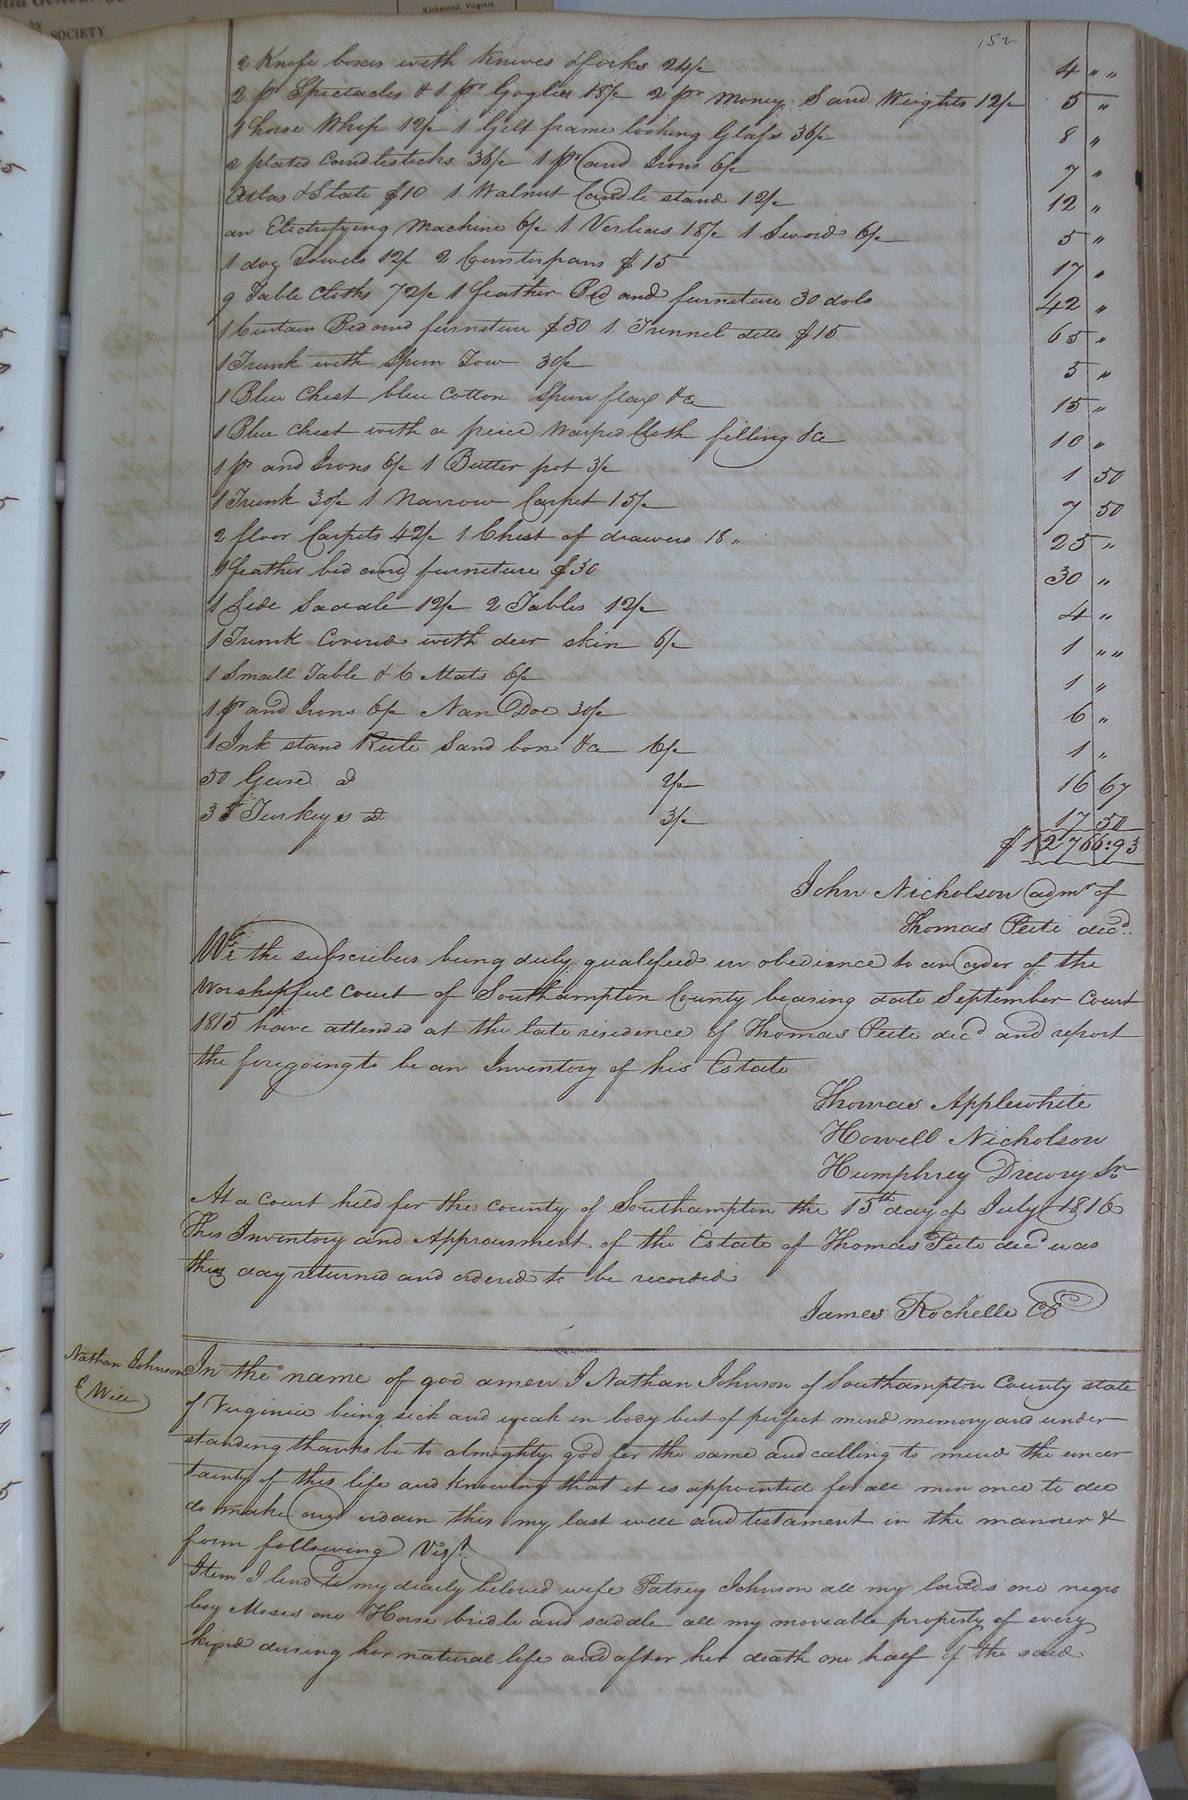 SOCIETY
Richmond, Virginia
152
2 Knife boxes with Knives & forks 24/ 4 " "
2 pr Spectacles & 1 pr Gogles 18/ 2 pr Money Sand Weights 12/ 5 "
1 horse Whip 12/ 1 Gilt frame looking Glass 36/ 8 "
2 plated Candlesticks 36/ 1 pr and Irons 6/ 7 "
Atlas & State $10 1 Walnut Candle stand 12/ 12 "
an Electrifying Machine 6/ 1 18/ 1 Sword 6/ 5 "
1 doz Towels 12/ 2 Counterpans $15 17 "
9 Table Cloths 72/ 1 feather Bed and furneture 30 dols 42 "
1 Curtain Bed and furneture $50 1 Trunnel ditto $15 65 "
1 Trunk with Spun Tow 30/ 5 "
1 Blue Chest blue Cotton Spun flax &c 15 "
1 Blue Chest with a peice Warped Cloth filling &c 10 "
1 pr and Irons 6/ 1 Butter pot 3/ 1 50
1 Trunk 30/ 1 Narrow Carpet 15/ 7 50
2 floor Carpets 42/ 1 Chest of drawers 18 " 25 "
1 feather bed and furneture $30 30 "
1 Side Saddle 12/ 2 Tables 12/ 4 "
1 Trunk Covered with deer skin 6/ 1 " "
1 Small Table & 6 Mats 6/ 1 "
1 pr and Irons 6/ Nan Doe 30/ 6 "
1 Ink stand Rule Sand box &c 6/ 1 "
50 Geese a 2/ 16 67
35 Turkeys a 3/ 17 50
$12766:93
John Nicholson admr of
Thomas Peete decd.
We the subscribers being duly qualified in obedience to an order of the
Worshipful Court of Southampton County bearing date September Court
1815 have attended at the late residence of Thomas Peete decd and report
the foregoing to be an Inventory of his Estate
Thomas Applewhite
Howell Nicholson
Humphrey Drewry Sr
At a Court held for the County of Southampton the 15th day of July 1816
This Inventory and Appraisment of the Estate of Thomas Peete decd was
this day returned and ordered to be recorded
James Rochelle CC
Nathan Johnson
Will
In the name of god amen I Nathan Johnson of Southampton County state
of Virginia being sick and weak in body but of perfect mind memory and under
standing thanks be to almighty god for the same and calling to mind the uncer
tainty of this life and knowing that it is appointed for all men once to die
do make and ordain this my last will and testament in the manner &
form following Vizt
Item I lend to my dearly beloved wife Patsey Johnson all my lands one negro
boy Moses one Horse bridle and saddle all my moveable property of every
kind during her natural life and after her death one half of the said